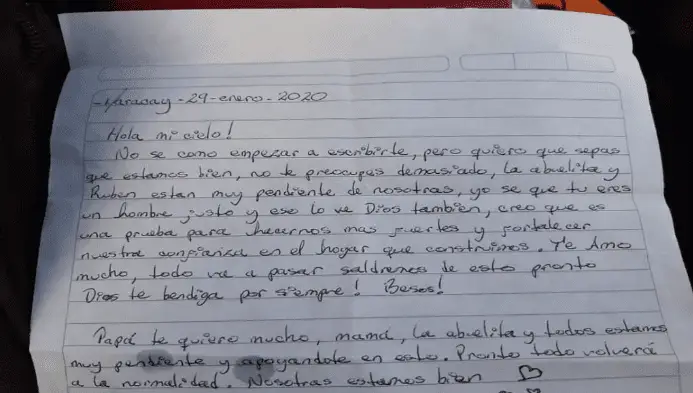 -Maracay-29-enero-2020
Hola mi cielo!
No se como empezar a escribirte, pero quiero que sepas
que estamos bien, no te preocupes demasiado, la abuelita y
Ruben estan muy pendiente de nosotras, yo se que tu eres
un hombre justo y eso lo ve Dios también, creo que es
una prueba para hacernos mas fuertes y fortalecer
nuestra confianza en el hogar que construimos. Te Amo
mucho, todo va a pasar saldremos de esto pronto
Dios te bendiga por siempre! Besos!
Papá te quiero mucho, mamá, la abuelita y todos estamos
muy pendiente y apoyandote en esto. Pronto todo volverá
a la normalidad. Nosotras estamos bien